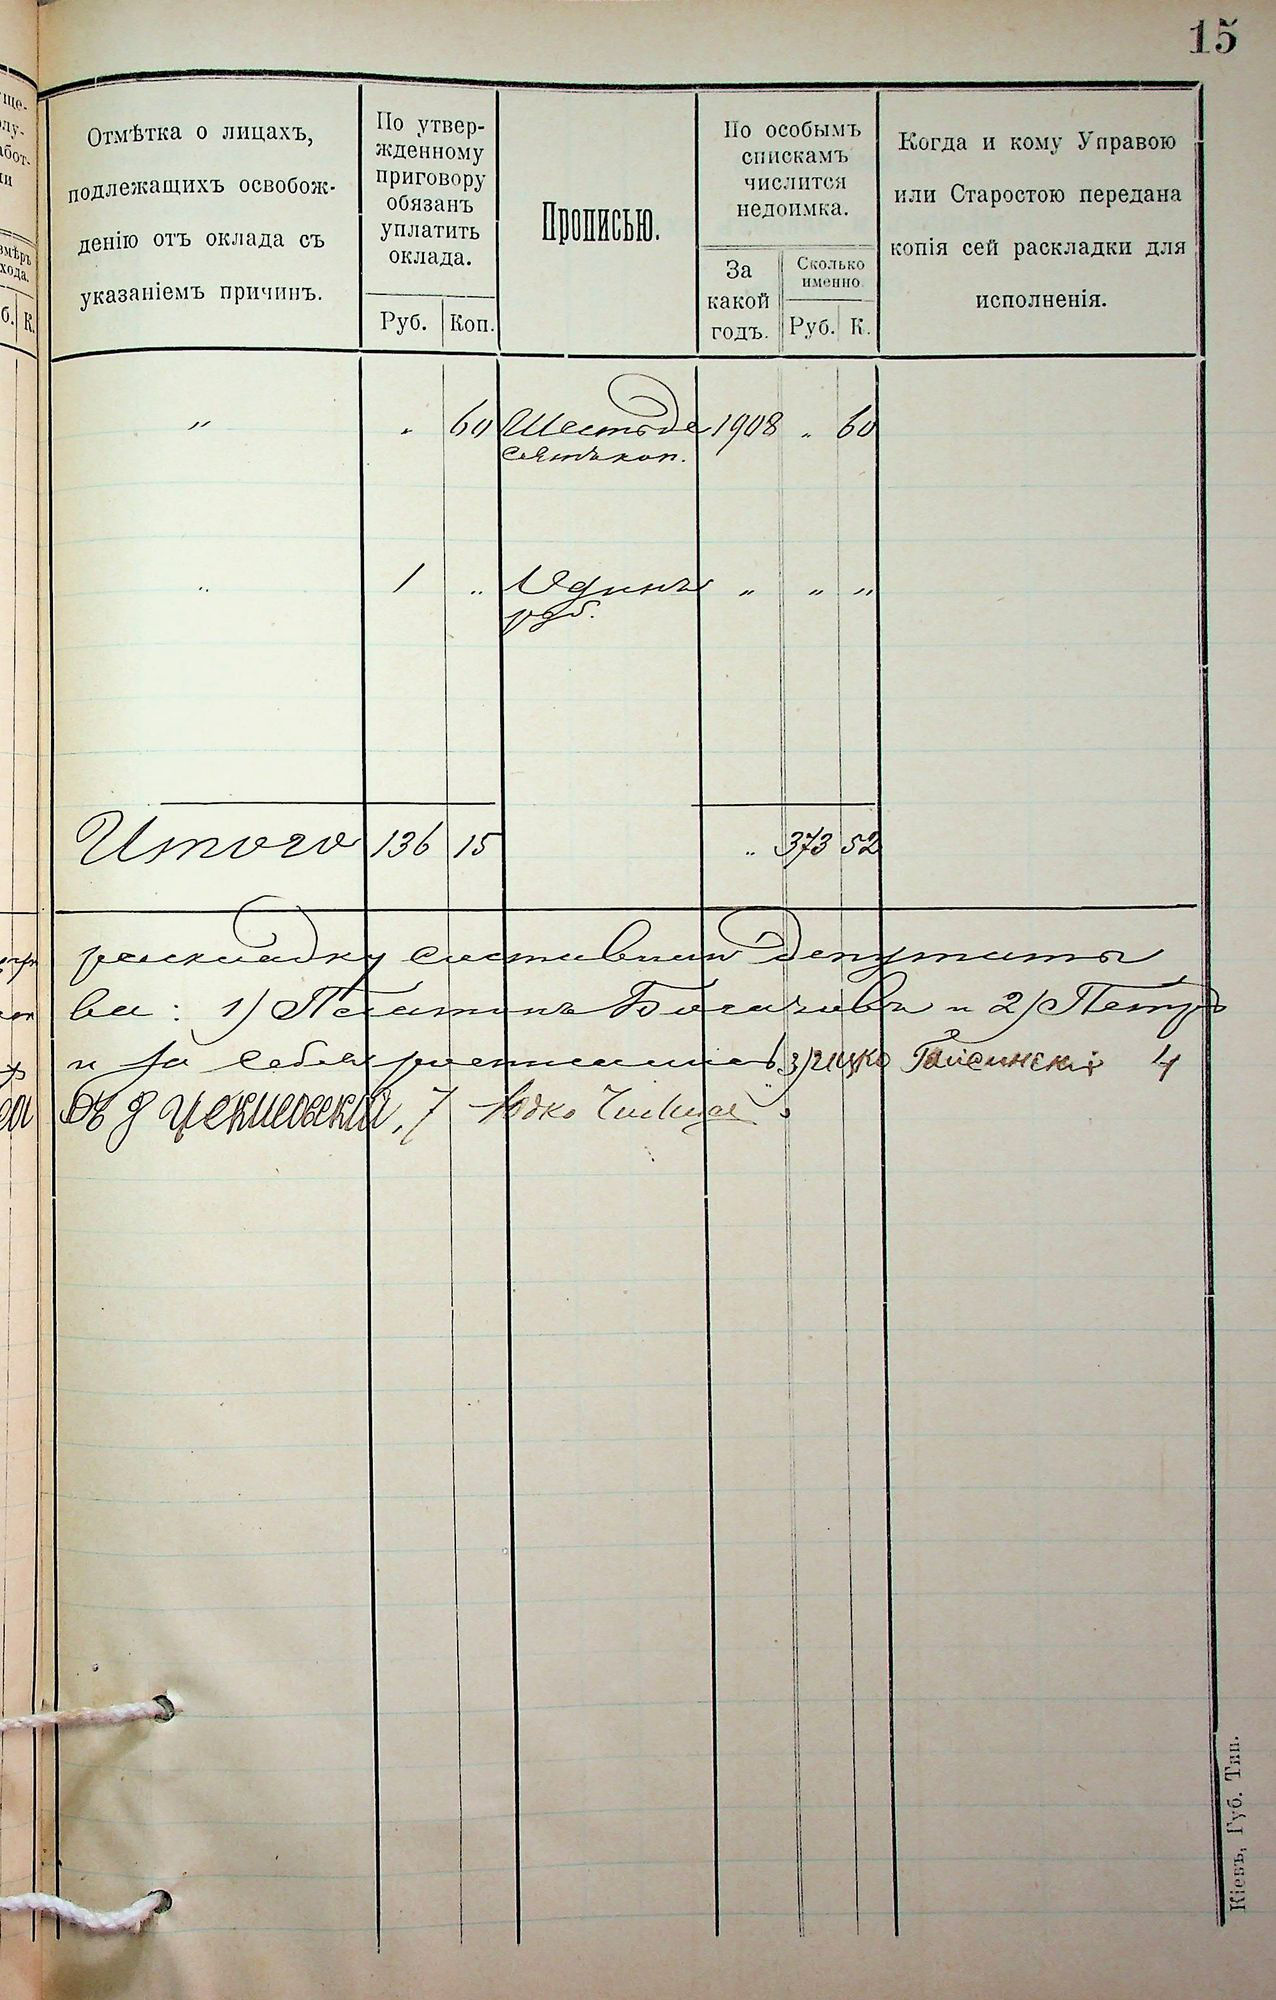 15
Отмѣтка о лицахъ,
подлежащихъ освобож-
денію отъ оклада съ
указаніемъ причинъ.
По утвер-
жденному
приговору
обязанъ
уплатить
оклада.
Руб. Коп.
Прописью.
По особымъ
спискамъ
числится
недоимка.
За
какой
годъ.
Сколько
именно
Руб. К.
Когда и кому Управою
или Старостою передана
копія сей раскладки для
исполненія.
" " 60 Шестьде 1908 " 60
сятъ коп.
" 1 " Одинъ " " "
руб.
Итого 136 15 " 373 52
раскладку составили депутаты
ва: 1) Платонъ Богачовъ и 2) Петръ
и за себя росписались 3) Ицко 4
7 Юдко
Кіевъ, Губ. Тип.